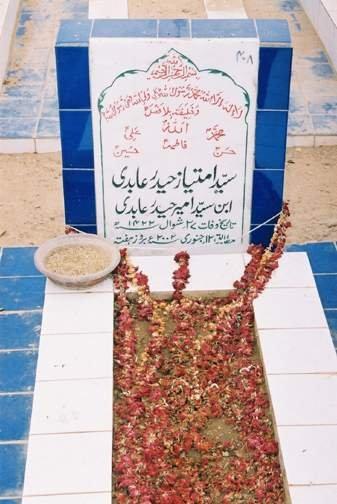 ۴۰۸
بسم اللہ الرحمن الرحیم
لا الہ الا اللہ محمد رسول اللہ علی ولی اللہ وصی رسول اللہ
و خلیفتہ بلا فصل
محمدؐ اللہ علیؑ
حسنؑ فاطمہؑ حسینؑ
سید امتیاز حیدر عابدی
ابن سید امیر حیدر عابدی
تاریخ وفات ۲۷ شوال ۱۴۲۲ھ
مطابق ۱۲ جنوری ۲۰۰۲ء بروز ہفتہ